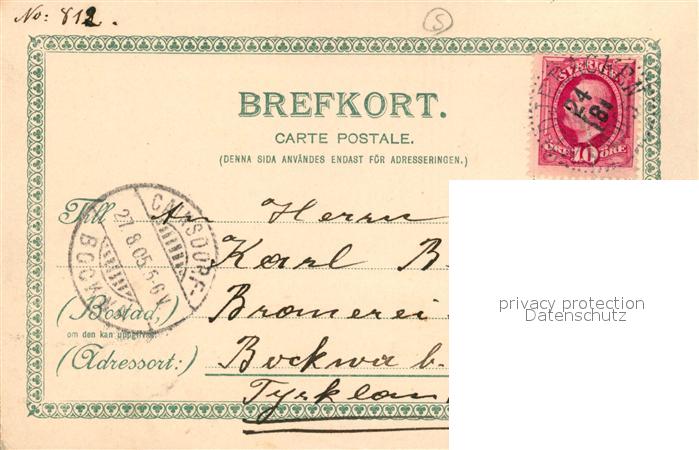 No: 812.
S
BREFKORT.
CARTE POSTALE.
(DENNA SIDA ANVÄNDES ENDAST FÖR ADRESSERINGEN.)
SVERIGE
24
8
10
ÖRE ÖRE
Till An Herrn
Karl B
(Bostad,) Bromerei
om den kan uppgifvas.
(Adressort:) Bockwa b.
Tyskland
CAINSDORF-
27.8.05.5-6V.
BOCKWA
privacy protection
Datenschutz